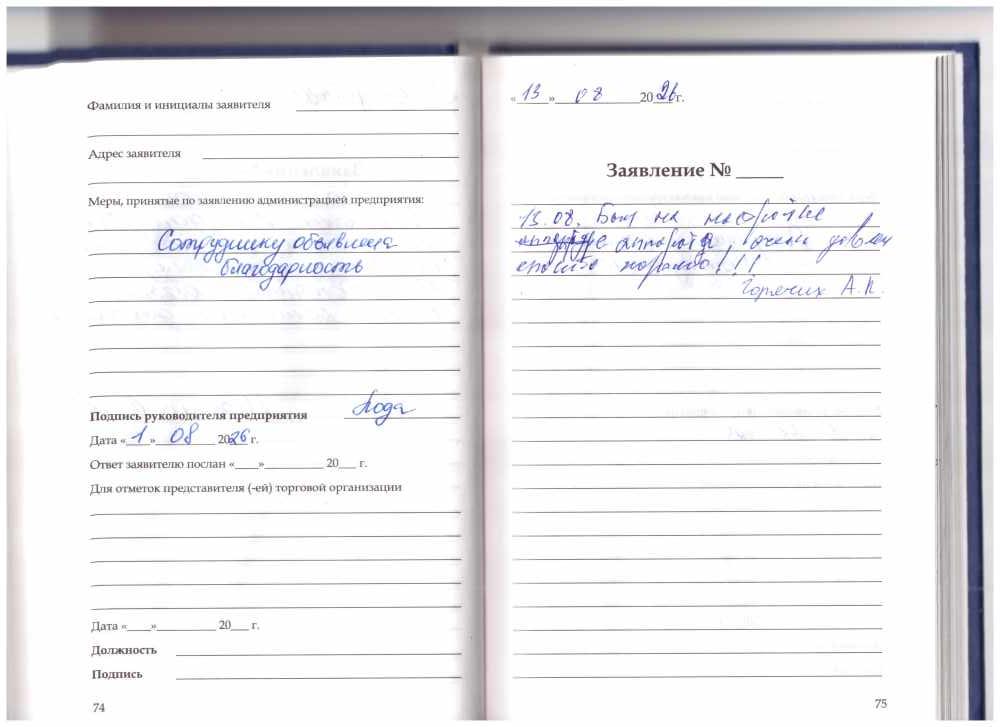 Фамилия и инициалы заявителя
Адрес заявителя
Меры, принятые по заявлению администрацией предприятия:
Сотруднику объявлена
благодарность
Подпись руководителя предприятия
Дата «1» 08 2026 г.
Ответ заявителю послан «____»__________ 20___ г.
Для отметок представителя (-ей) торговой организации
Дата «____»__________ 20___ г.
Должность
Подпись
74
«13» 08 2026 г.
Заявление № _____
13.08. Был на настройке
аппарата, очень доволен
спасибо !!!
А.
75